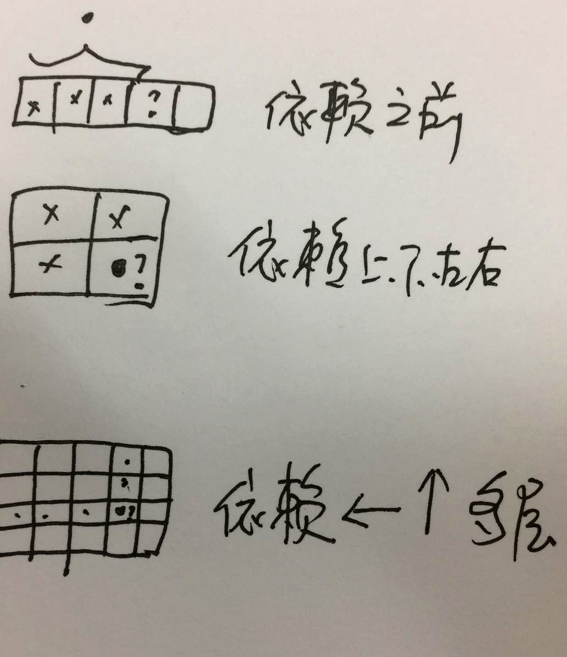 x x x ? 依赖之前
x x
x ? 依赖上.下.左右
? 依赖←↑多层